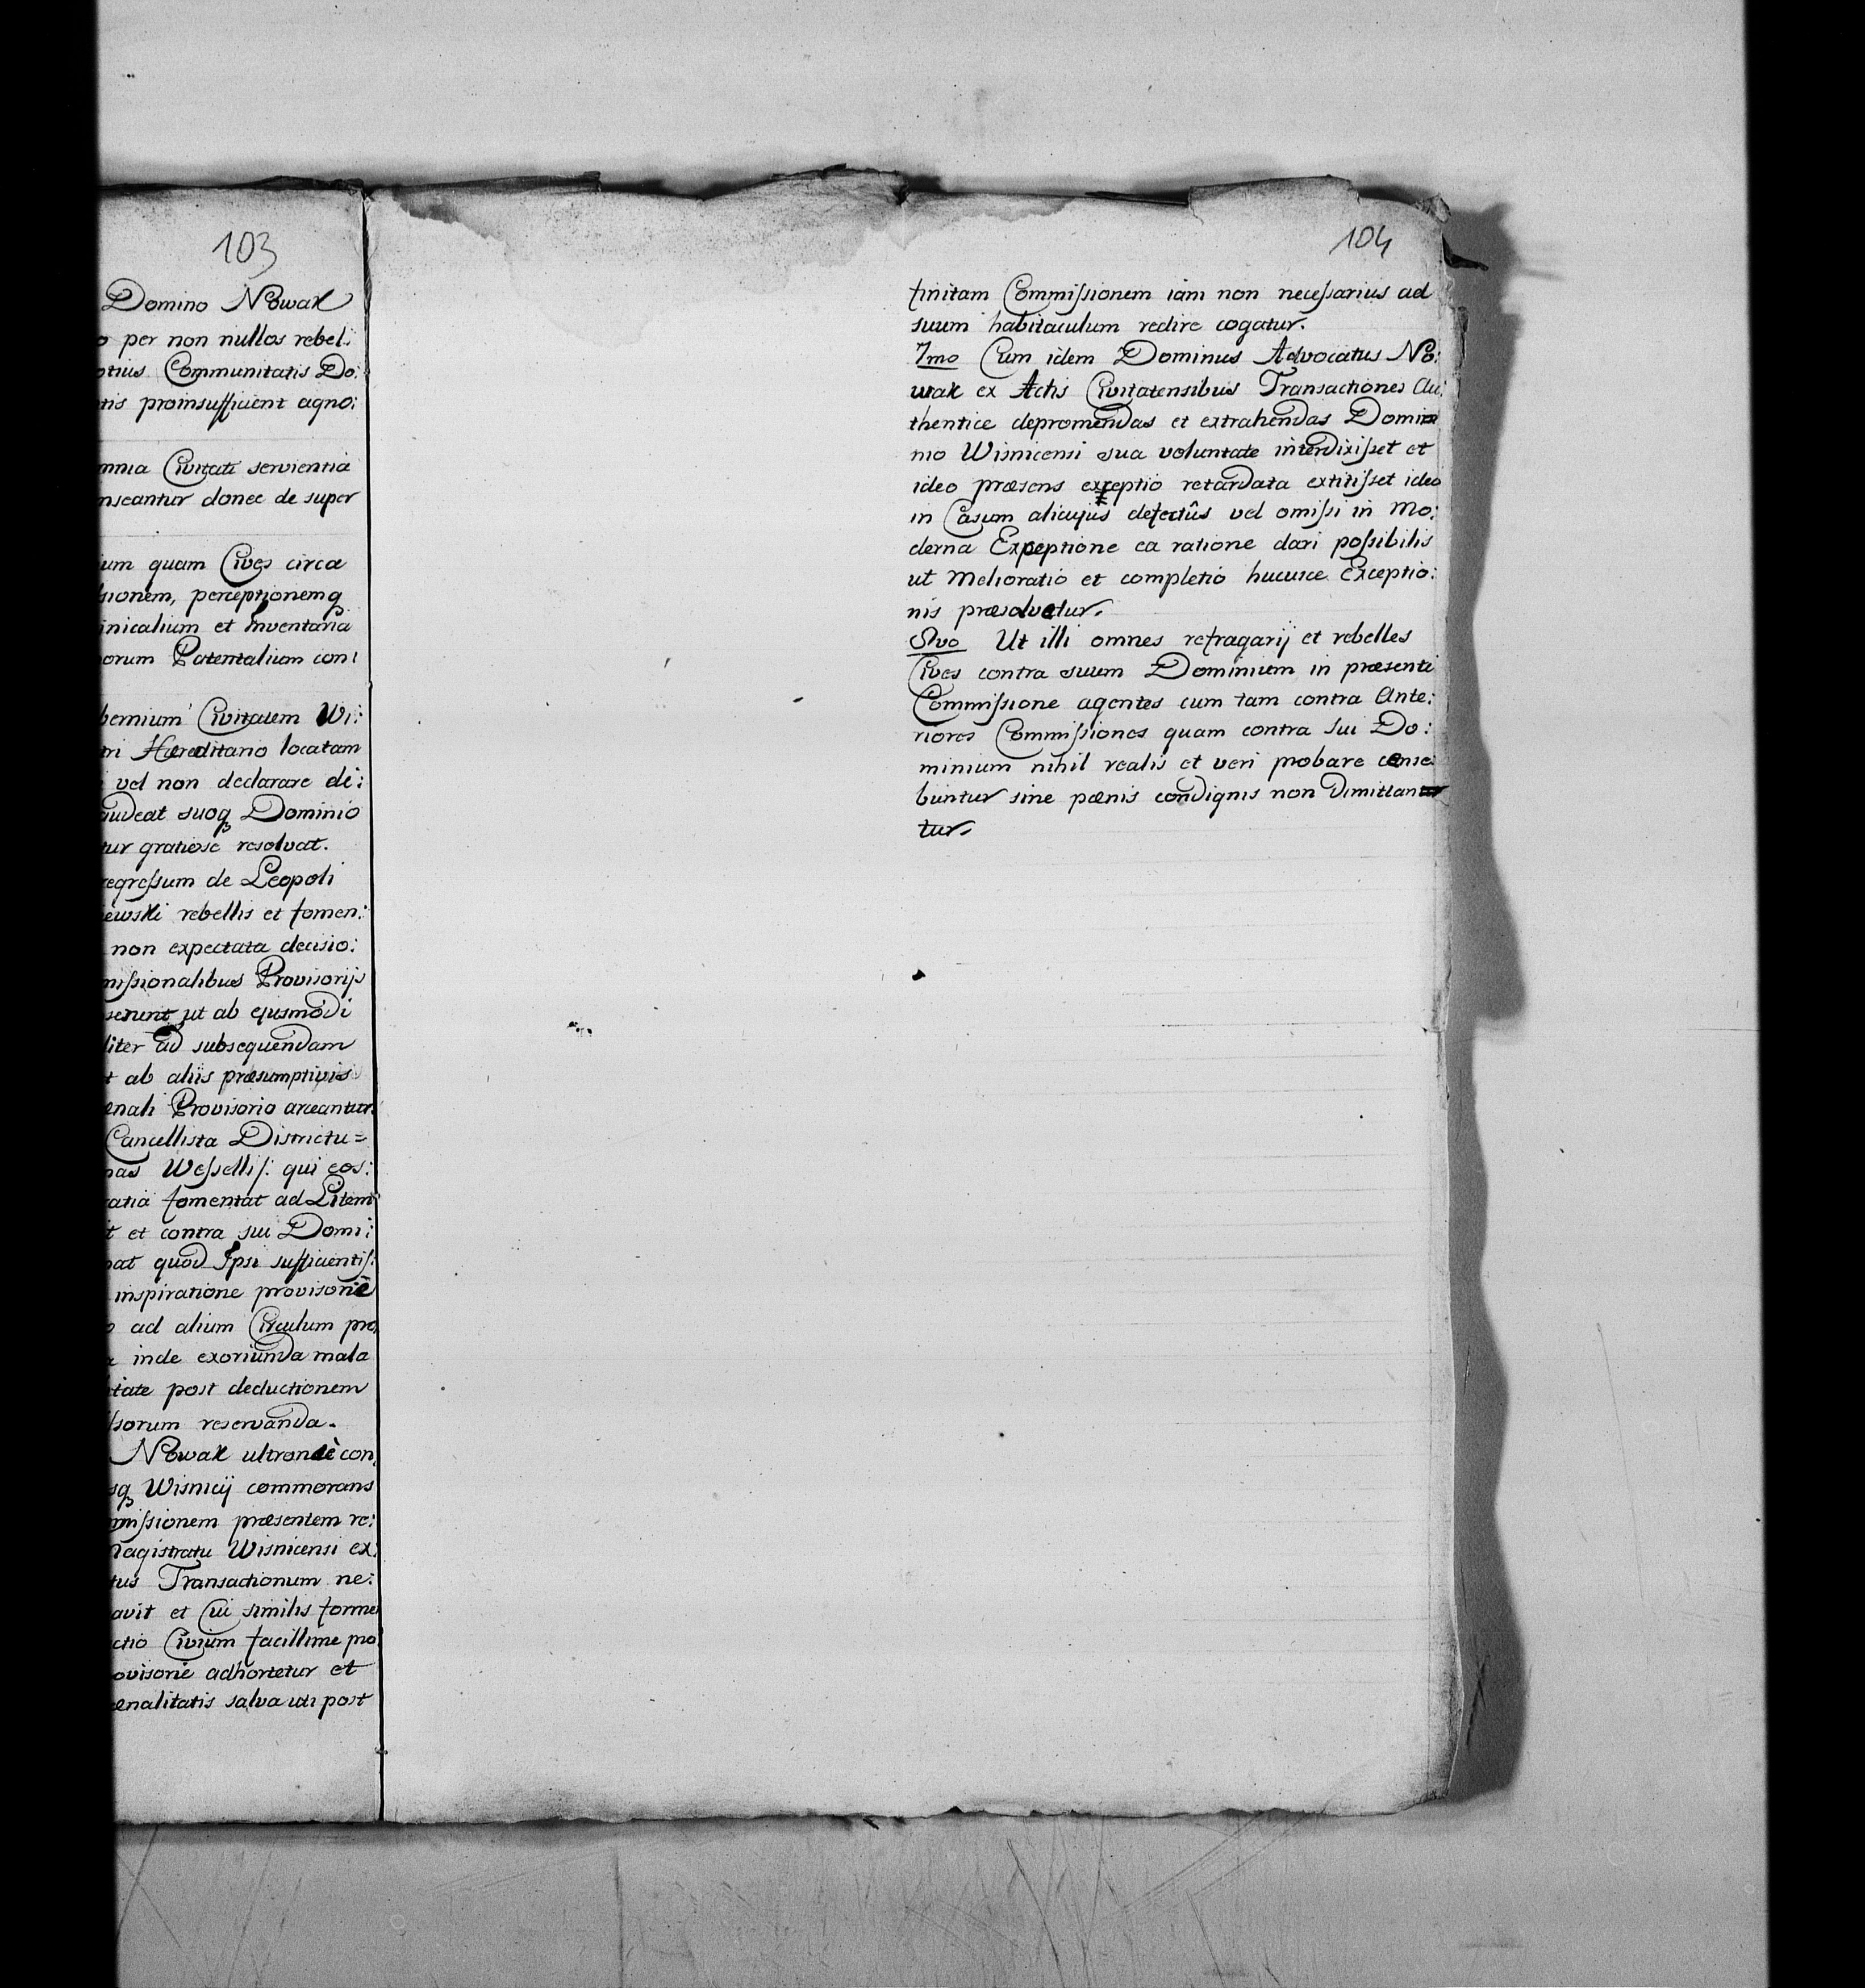 103
Domino Nowak
per non nullos rebel:
otius Communitatis Do:
tis proinsufficient agno:
mnia Civitati servientia
nseantur donec de super
um quam Cives circa
sionem, perceptionemq
inicalium et Inventaria
orum Patentalium con:
bernium Civitatem Wi:
tri Hæreditario locatam
vel non declarare di:
audeat suoq Dominio
tur gratiose resolvat.
regressum de Leopoli
iewski rebellis et fomen:
non expectata decisio:
missionalibus Provisorijs
serunt ut ab ejusmodi
liter ad subsequendam
t ab aliis præsumptivis
enali Provisorio arceantur.
Cancellista Districtu=
nas Wessellis: qui eos:
ratia fomentat ad Litem
t et contra sui Domi:
nat quod Ipsi sufficientis:
inspiratione provisorie
ad alium Circulum pro
inde exoriunda mala
tate post deductionem
ssorum reservanda.
Nowak ultronee con
sq Wisnicij commorans
mmissionem præsentem re:
Magistratu Wisnicensi ex:
tus Transactionum ne:
avit et Cui similis forme
ctio Civium facillime pro
ovisorie adhortetur et
œnalitatis salva uti post
104
finitam Commissionem iam non necessarius ad
suum habitaculum redire cogatur.
7mo Cum idem Dominus Advocatus No:
wak ex Actis Civitatensibus Transactiones Au:
thentice depromendas et extrahendas Domi
nio Wisnicensi sua voluntate interdixisset et
ideo præsens exceptio retardata extitisset ideo
in Casum alicujus defectûs vel omissi in Mo:
derna Expeptione ea ratione dari possibilis
ut Melioratio et completio hucusce Exceptio:
nis præsolvatur.
8vo Ut illi omnes refragarij et rebelles
Cives contra suum Dominium in præsenti
Commissione agentes cum tam contra Ante:
riores Commissiones quam contra sui Do:
minium nihil realis et veri probare cense:
buntur sine pœnis condignis non Dimittan
tur.